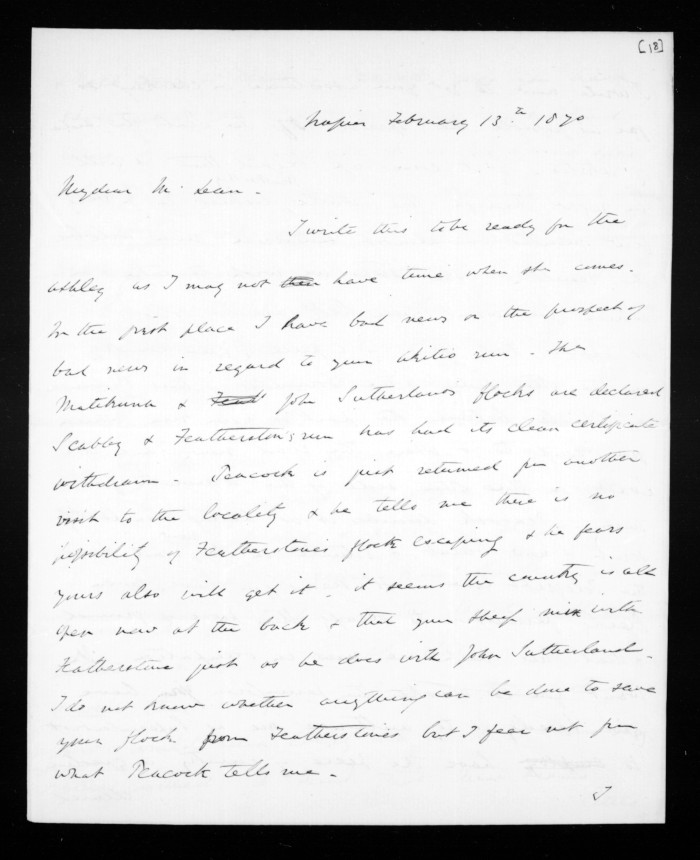 [18]
Napier February 13th 1870
My dear McLean -
I write this to be ready for the
Ashley as I may not then have time when she comes.
In the first place I have bad news or the prospect of
bad news in regard to your Akitio run. The
Matikuna & John Sutherlands flocks are declared
Scabby & Featherstons run has had its clean certificate
withdrawn - Peacock is just returned from another
visit to the locality & he tells me there is no
possibility of Featherstones flock escaping & he fears
yours also will get it. it seems the country is all
open now at the back & that your sheep mix with
Featherstone just as he does with John Sutherland -
I do not know whether anything can be done to save
your flock from Featherstones but I fear not from
what Peacock tells me -
I